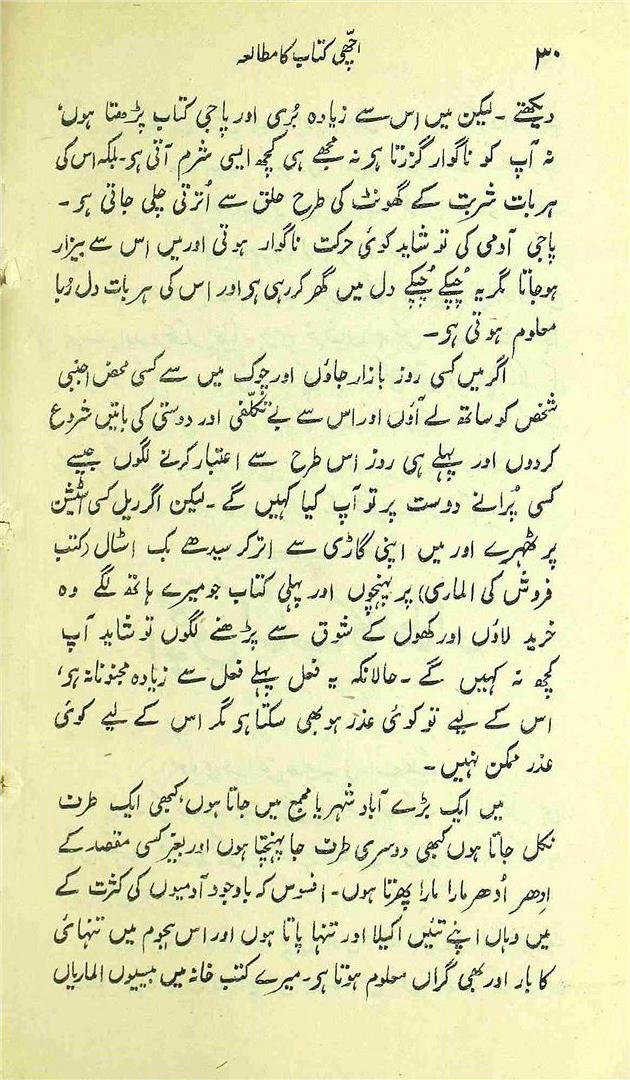 ۳۰ اچھی کتاب کا مطالعہ
دیکھتے ۔ لیکن میں اس سے زیادہ بُری اور پاجی کتاب پڑھتا ہوں،
نہ آپ کو ناگوار گزرتا ہو نہ مجھے ہی کچھ ایسی شرم آتی ہو۔ بلکہ اس کی
ہر بات شربت کے گھونٹ کی طرح حلق سے اُترتی چلی جاتی ہو ۔
پاجی آدمی کی تو شاید کوئی حرکت ناگوار ہوتی اور میں اس سے بیزار
ہو جاتا مگر یہ چُپکے چُپکے دل میں گھر کر رہی ہو اور اس کی ہر بات دل رُبا
معلوم ہوتی ہو ۔
اگر میں کسی روز بازار جاؤں اور چوک میں سے کسی محض اجنبی
شخص کو ساتھ لے آؤں اور اس سے بے تکلّفی اور دوستی کی باتیں شروع
کردوں اور پہلے ہی روز اس طرح سے اعتبار کرنے لگوں جیسے
کسی پُرانے دوست پر تو آپ کیا کہیں گے ۔ لیکن اگر ریل کسی اسٹیشن
پر ٹھہرے اور میں اپنی گاڑی سے اتر کر سیدھے بک اسٹال (کتب
فروش کی الماری) پر پہنچوں اور پہلی کتاب جو میرے ہاتھ لگے وہ
خرید لاؤں اور کھول کے شوق سے پڑھنے لگوں تو شاید آپ
کچھ نہ کہیں گے ۔ حالانکہ یہ فعل پہلے فعل سے زیادہ مجنونانہ ہو،
اس کے لیے تو کوئی عذر ہو بھی سکتا ہو مگر اس کے لیے کوئی
عذر ممکن نہیں ۔
میں ایک بڑے آباد شہر یا مجمع میں جاتا ہوں، کبھی ایک طرف
نکل جاتا ہوں کبھی دوسری طرف جا پہنچتا ہوں اور بغیر کسی مقصد کے
اِدھر اُدھر مارا مارا پھرتا ہوں ۔ افسوس کہ باوجود آدمیوں کی کثرت کے
میں وہاں اپنے تئیں اکیلا اور تنہا پاتا ہوں اور اس ہجوم میں تنہائی
کا بار اور بھی گراں معلوم ہوتا ہو ۔ میرے کتب خانہ میں بیسیوں الماریاں